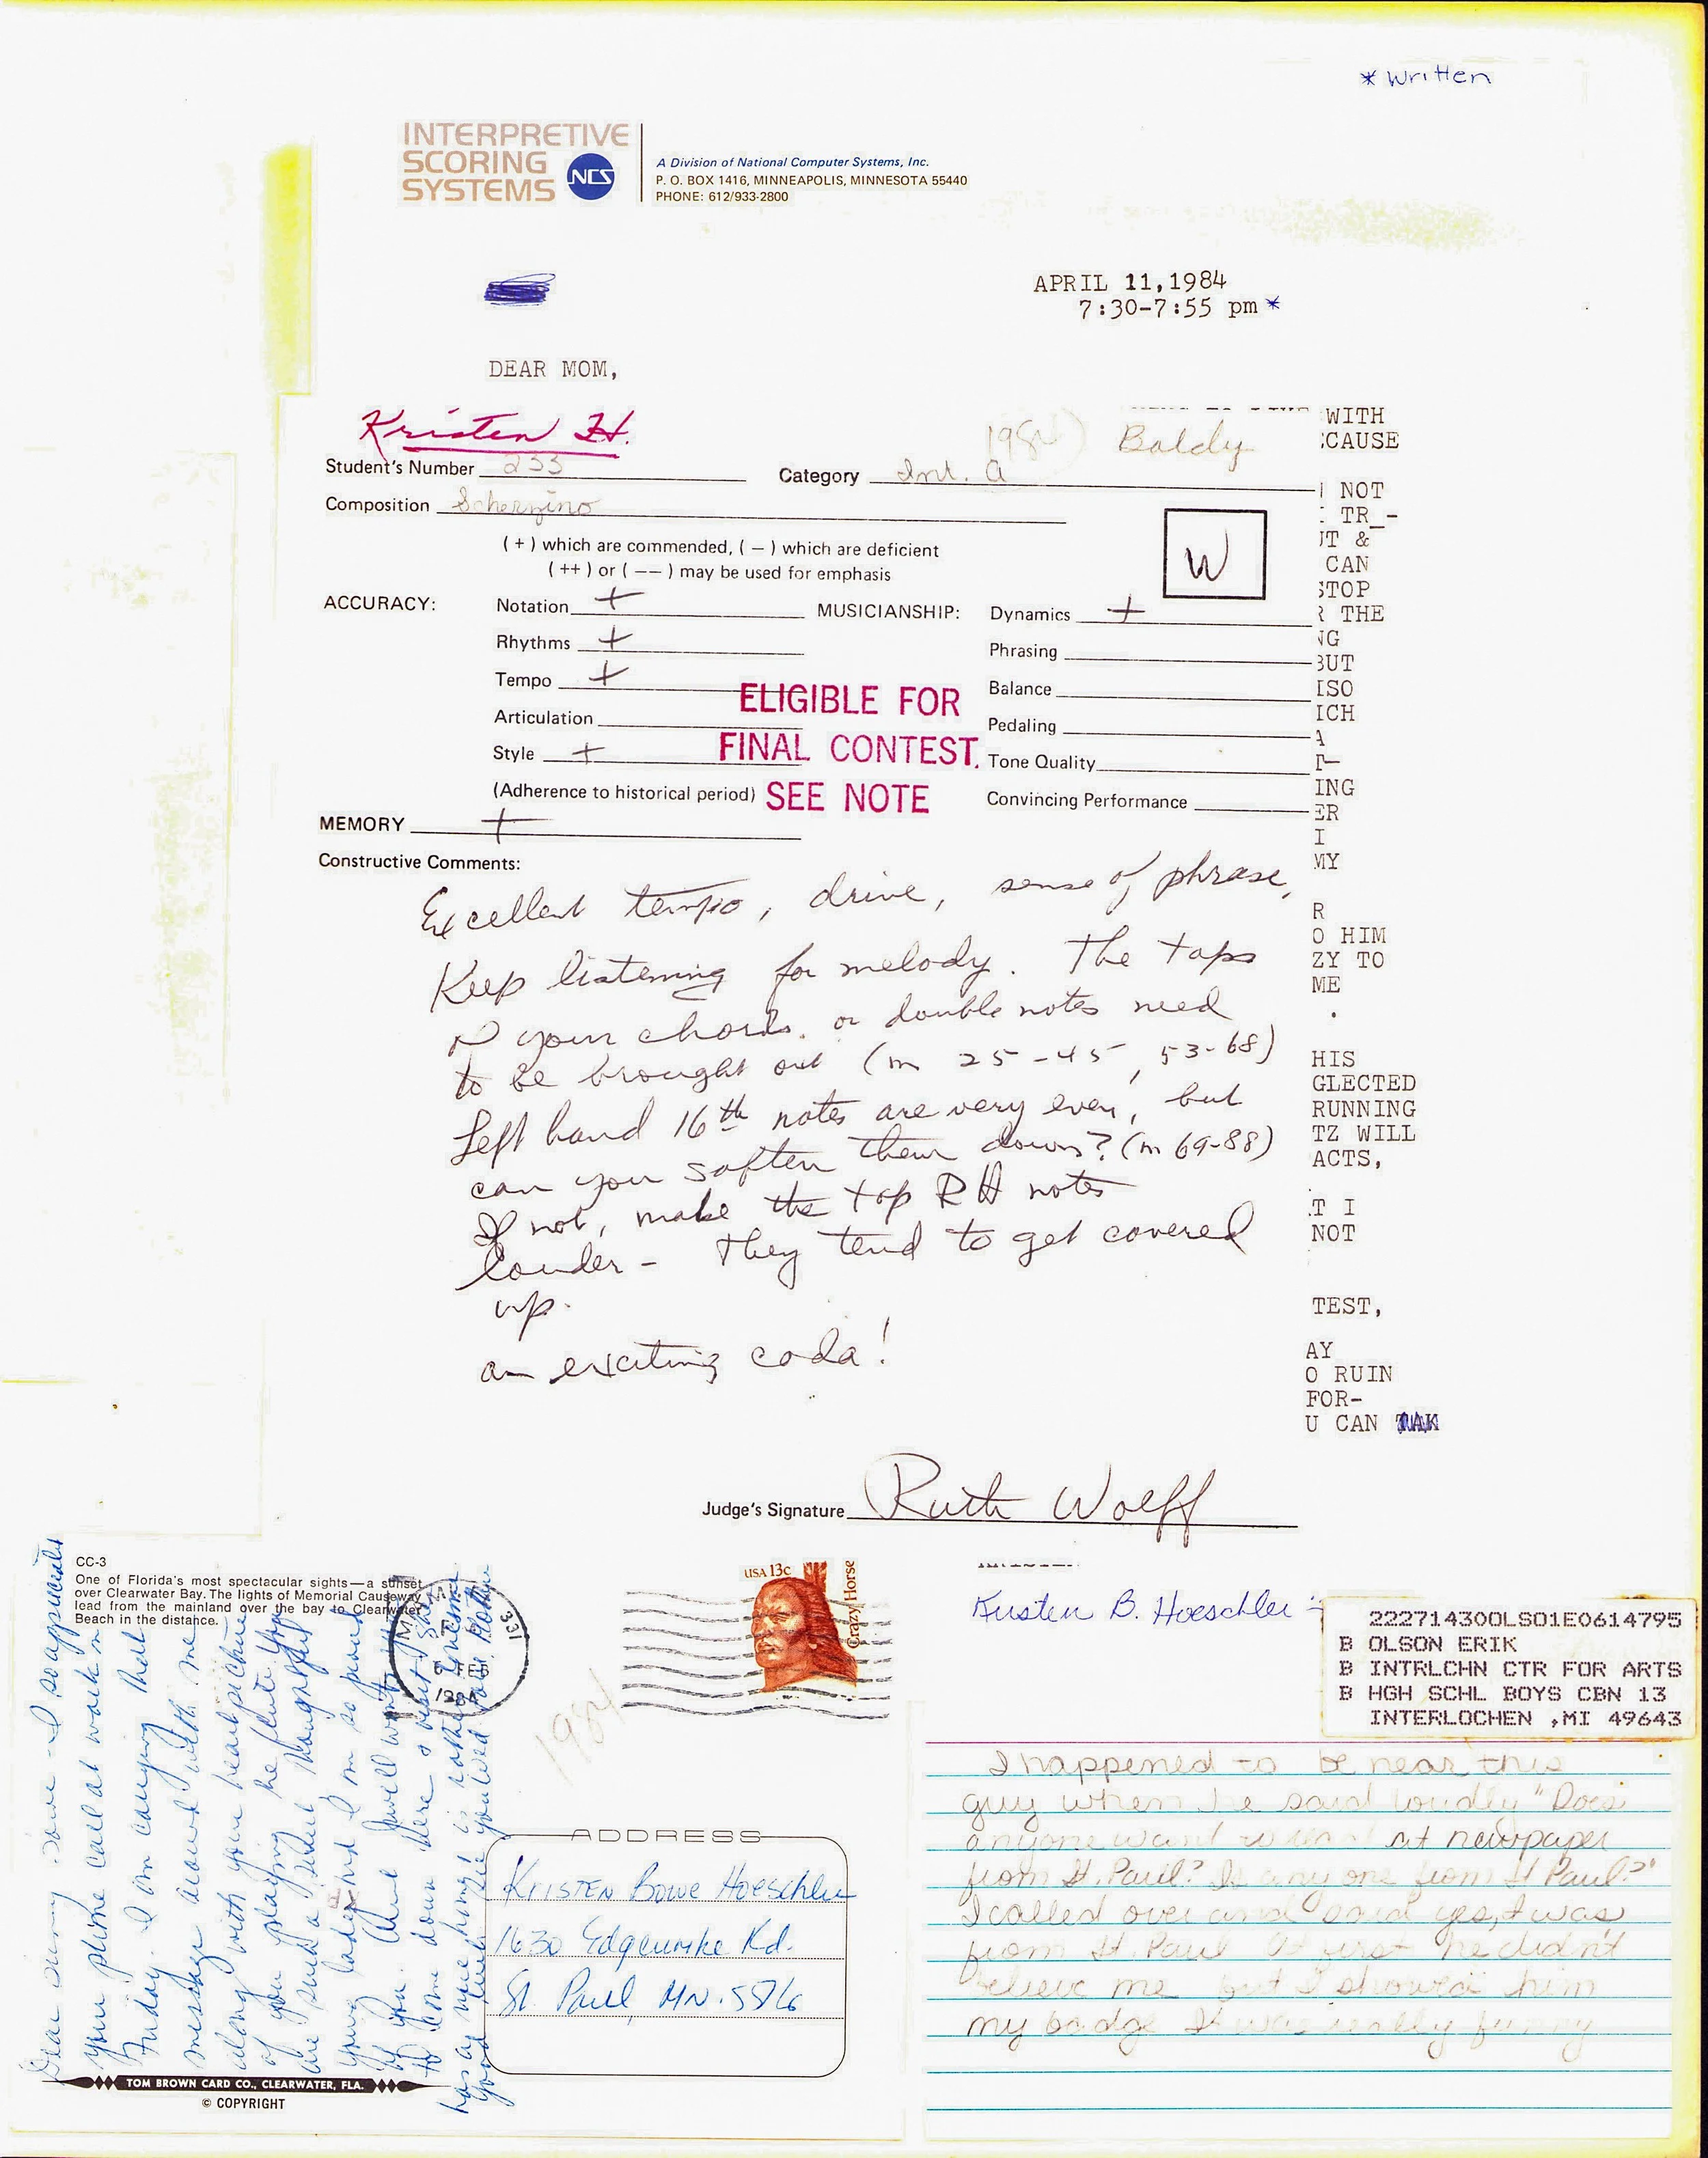 * written
INTERPRETIVE
SCORING
SYSTEMS
NCS
A Division of National Computer Systems, Inc.
P. O. BOX 1416, MINNEAPOLIS, MINNESOTA 55440
PHONE: 612/933-2800
APRIL 11,1984
7:30-7:55 pm *
DEAR MOM,
Kristen H.
1984
Baldy
Student's Number 233
Category Int. A
Composition Scherzino
(+) which are commended, (−) which are deficient
(++) or (−−) may be used for emphasis
W
ACCURACY:
Notation +
Rhythms +
Tempo +
Articulation
Style +
(Adherence to historical period)
MUSICIANSHIP:
Dynamics +
Phrasing
Balance
Pedaling
Tone Quality
Convincing Performance
ELIGIBLE FOR
FINAL CONTEST.
SEE NOTE
MEMORY +
Constructive Comments:
Excellent tempo, drive, sense of phrase,
Keep listening for melody. The tops
of your chords. or double notes need
to be brought out (m 25-45, 53-68)
Left hand 16th notes are very even, but
can you soften them down? (m 69-88)
If not, make the top RH notes
louder - They tend to get covered
up.
an exciting coda!
Judge's Signature Ruth Wolff
WITH
CAUSE
NOT
TR_-
UT &
CAN
STOP
R THE
NG
BUT
ISO
ICH
A
T-
ING
ER
I
MY
R
O HIM
ZY TO
ME
.
HIS
GLECTED
RUNNING
TZ WILL
ACTS,
T I
NOT
TEST,
AY
O RUIN
FOR-
U CAN TAK
CC-3
One of Florida's most spectacular sights—a sunset
over Clearwater Bay. The lights of Memorial Causeway
lead from the mainland over the bay to Clearwater
Beach in the distance.
Dear I so appreciate
your phone call at work on
Friday. I am carrying that
message around with me
along with your picture
of you playing the flute. You
are such a thoughtful
young lady and I'm so proud
of you.
to come down here & visit
has a nice home
MIAMI
331
FEB
1984
USA 13c
Crazy Horse
1984
ADDRESS
KRISTEN BOWE Hoeschler
1630 Edgcumbe Rd.
St. Paul MN.
TOM BROWN CARD CO., CLEARWATER, FLA.
© COPYRIGHT
Kristen B. Hoeschler
222714300LS01E0614795
B OLSON ERIK
B INTRLCHN CTR FOR ARTS
B HGH SCHL BOYS CBN 13
INTERLOCHEN ,MI 49643
I happened to be near this
guy when he said loudly "Does
anyone want at newpaper
from St. Paul? Is anyone from St Paul?"
I called over and said yes, I was
from St. Paul At first he didn't
believe me but I showed him
my badge It was really funny